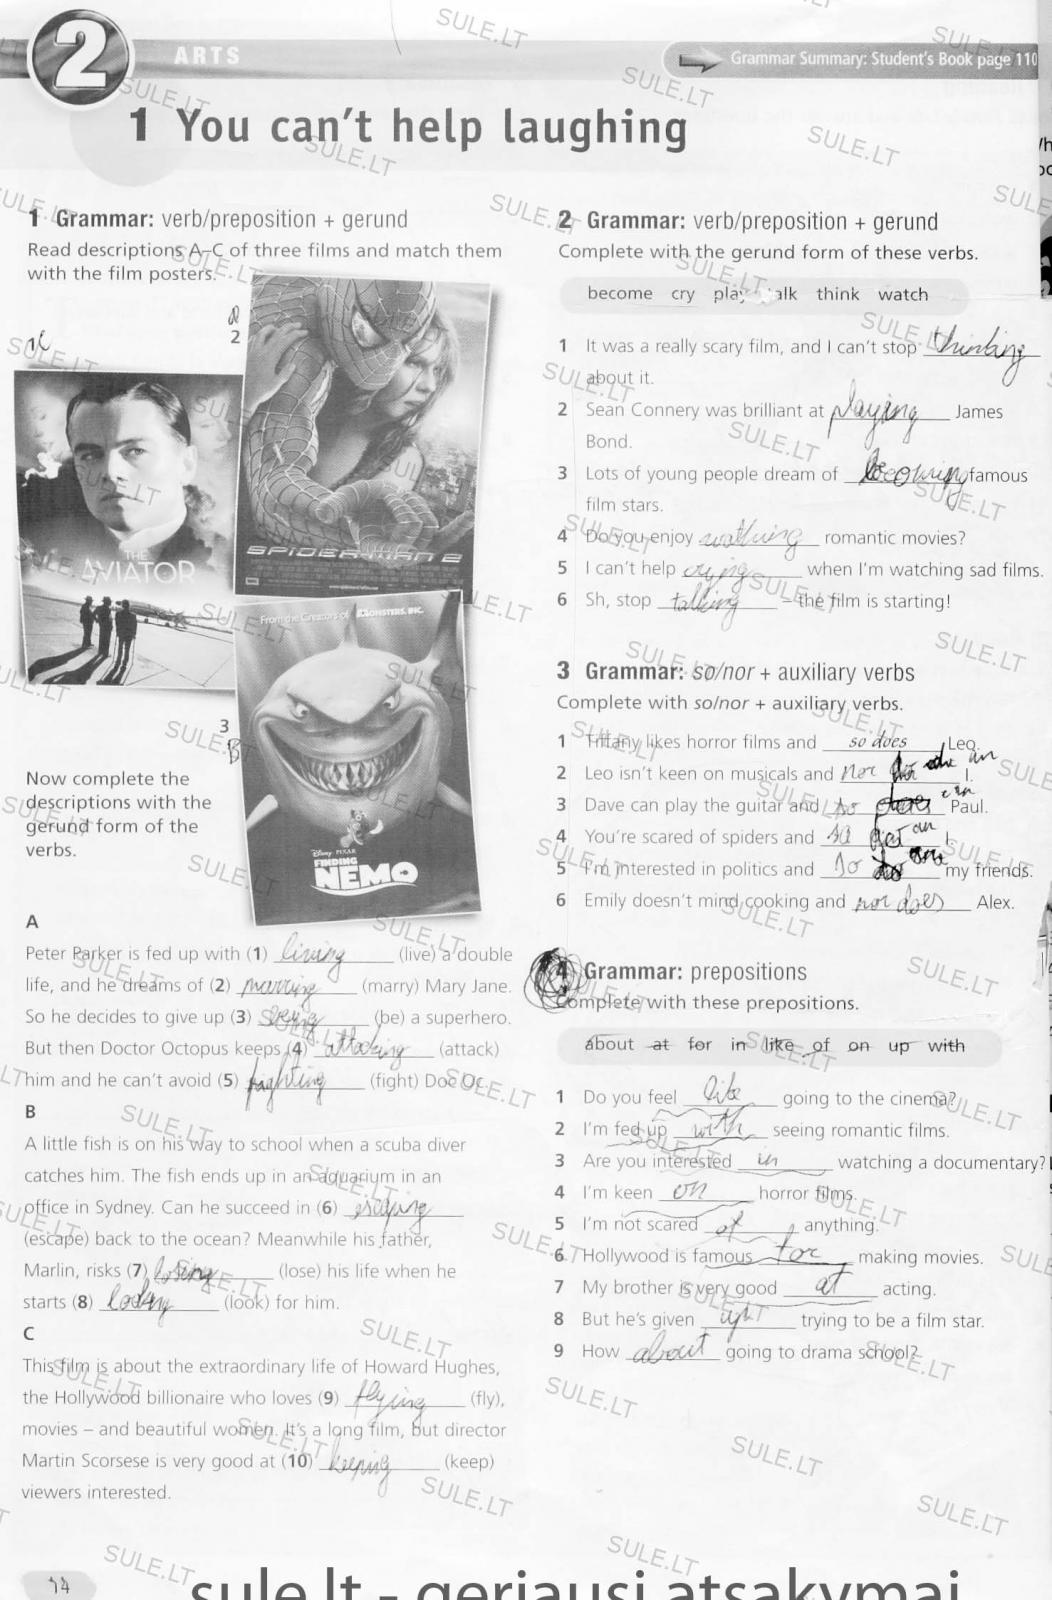 2
ARTS
Grammar Summary: Student's Book page 110
1 You can't help laughing
1 Grammar: verb/preposition + gerund
Read descriptions A–C of three films and match them
with the film posters.
1 C
2
THE
AVIATOR
SPIDER-MAN 2
From the Creators of MONSTERS, INC.
Disney · PIXAR
FINDING
NEMO
3
B
Now complete the
descriptions with the
gerund form of the
verbs.
A
Peter Parker is fed up with (1) living (live) a double
life, and he dreams of (2) marring (marry) Mary Jane.
So he decides to give up (3) being (be) a superhero.
But then Doctor Octopus keeps (4) attacking (attack)
him and he can't avoid (5) fighting (fight) Doc Oc.
B
A little fish is on his way to school when a scuba diver
catches him. The fish ends up in an aquarium in an
office in Sydney. Can he succeed in (6) escaping
(escape) back to the ocean? Meanwhile his father,
Marlin, risks (7) losing (lose) his life when he
starts (8) (look) for him.
C
This film is about the extraordinary life of Howard Hughes,
the Hollywood billionaire who loves (9) flying (fly),
movies – and beautiful women. It's a long film, but director
Martin Scorsese is very good at (10) keeping (keep)
viewers interested.
14
2 Grammar: verb/preposition + gerund
Complete with the gerund form of these verbs.
become cry play talk think watch
1 It was a really scary film, and I can't stop thinking
about it.
2 Sean Connery was brilliant at playing James
Bond.
3 Lots of young people dream of becoming famous
film stars.
4 Do you enjoy watching romantic movies?
5 I can't help crying when I'm watching sad films.
6 Sh, stop talking – the film is starting!
3 Grammar: so/nor + auxiliary verbs
Complete with so/nor + auxiliary verbs.
1 Tiffany likes horror films and so does Leo.
2 Leo isn't keen on musicals and nor am I.
3 Dave can play the guitar and so can Paul.
4 You're scared of spiders and so am I.
5 I'm interested in politics and so are my friends.
6 Emily doesn't mind cooking and nor does Alex.
4 Grammar: prepositions
Complete with these prepositions.
about at for in like of on up with
1 Do you feel like going to the cinema?
2 I'm fed up with seeing romantic films.
3 Are you interested in watching a documentary?
4 I'm keen on horror films.
5 I'm not scared of anything.
6 Hollywood is famous for making movies.
7 My brother is very good at acting.
8 But he's given up trying to be a film star.
9 How about going to drama school?
SULE.LT
sule.lt - geriausi atsakymai